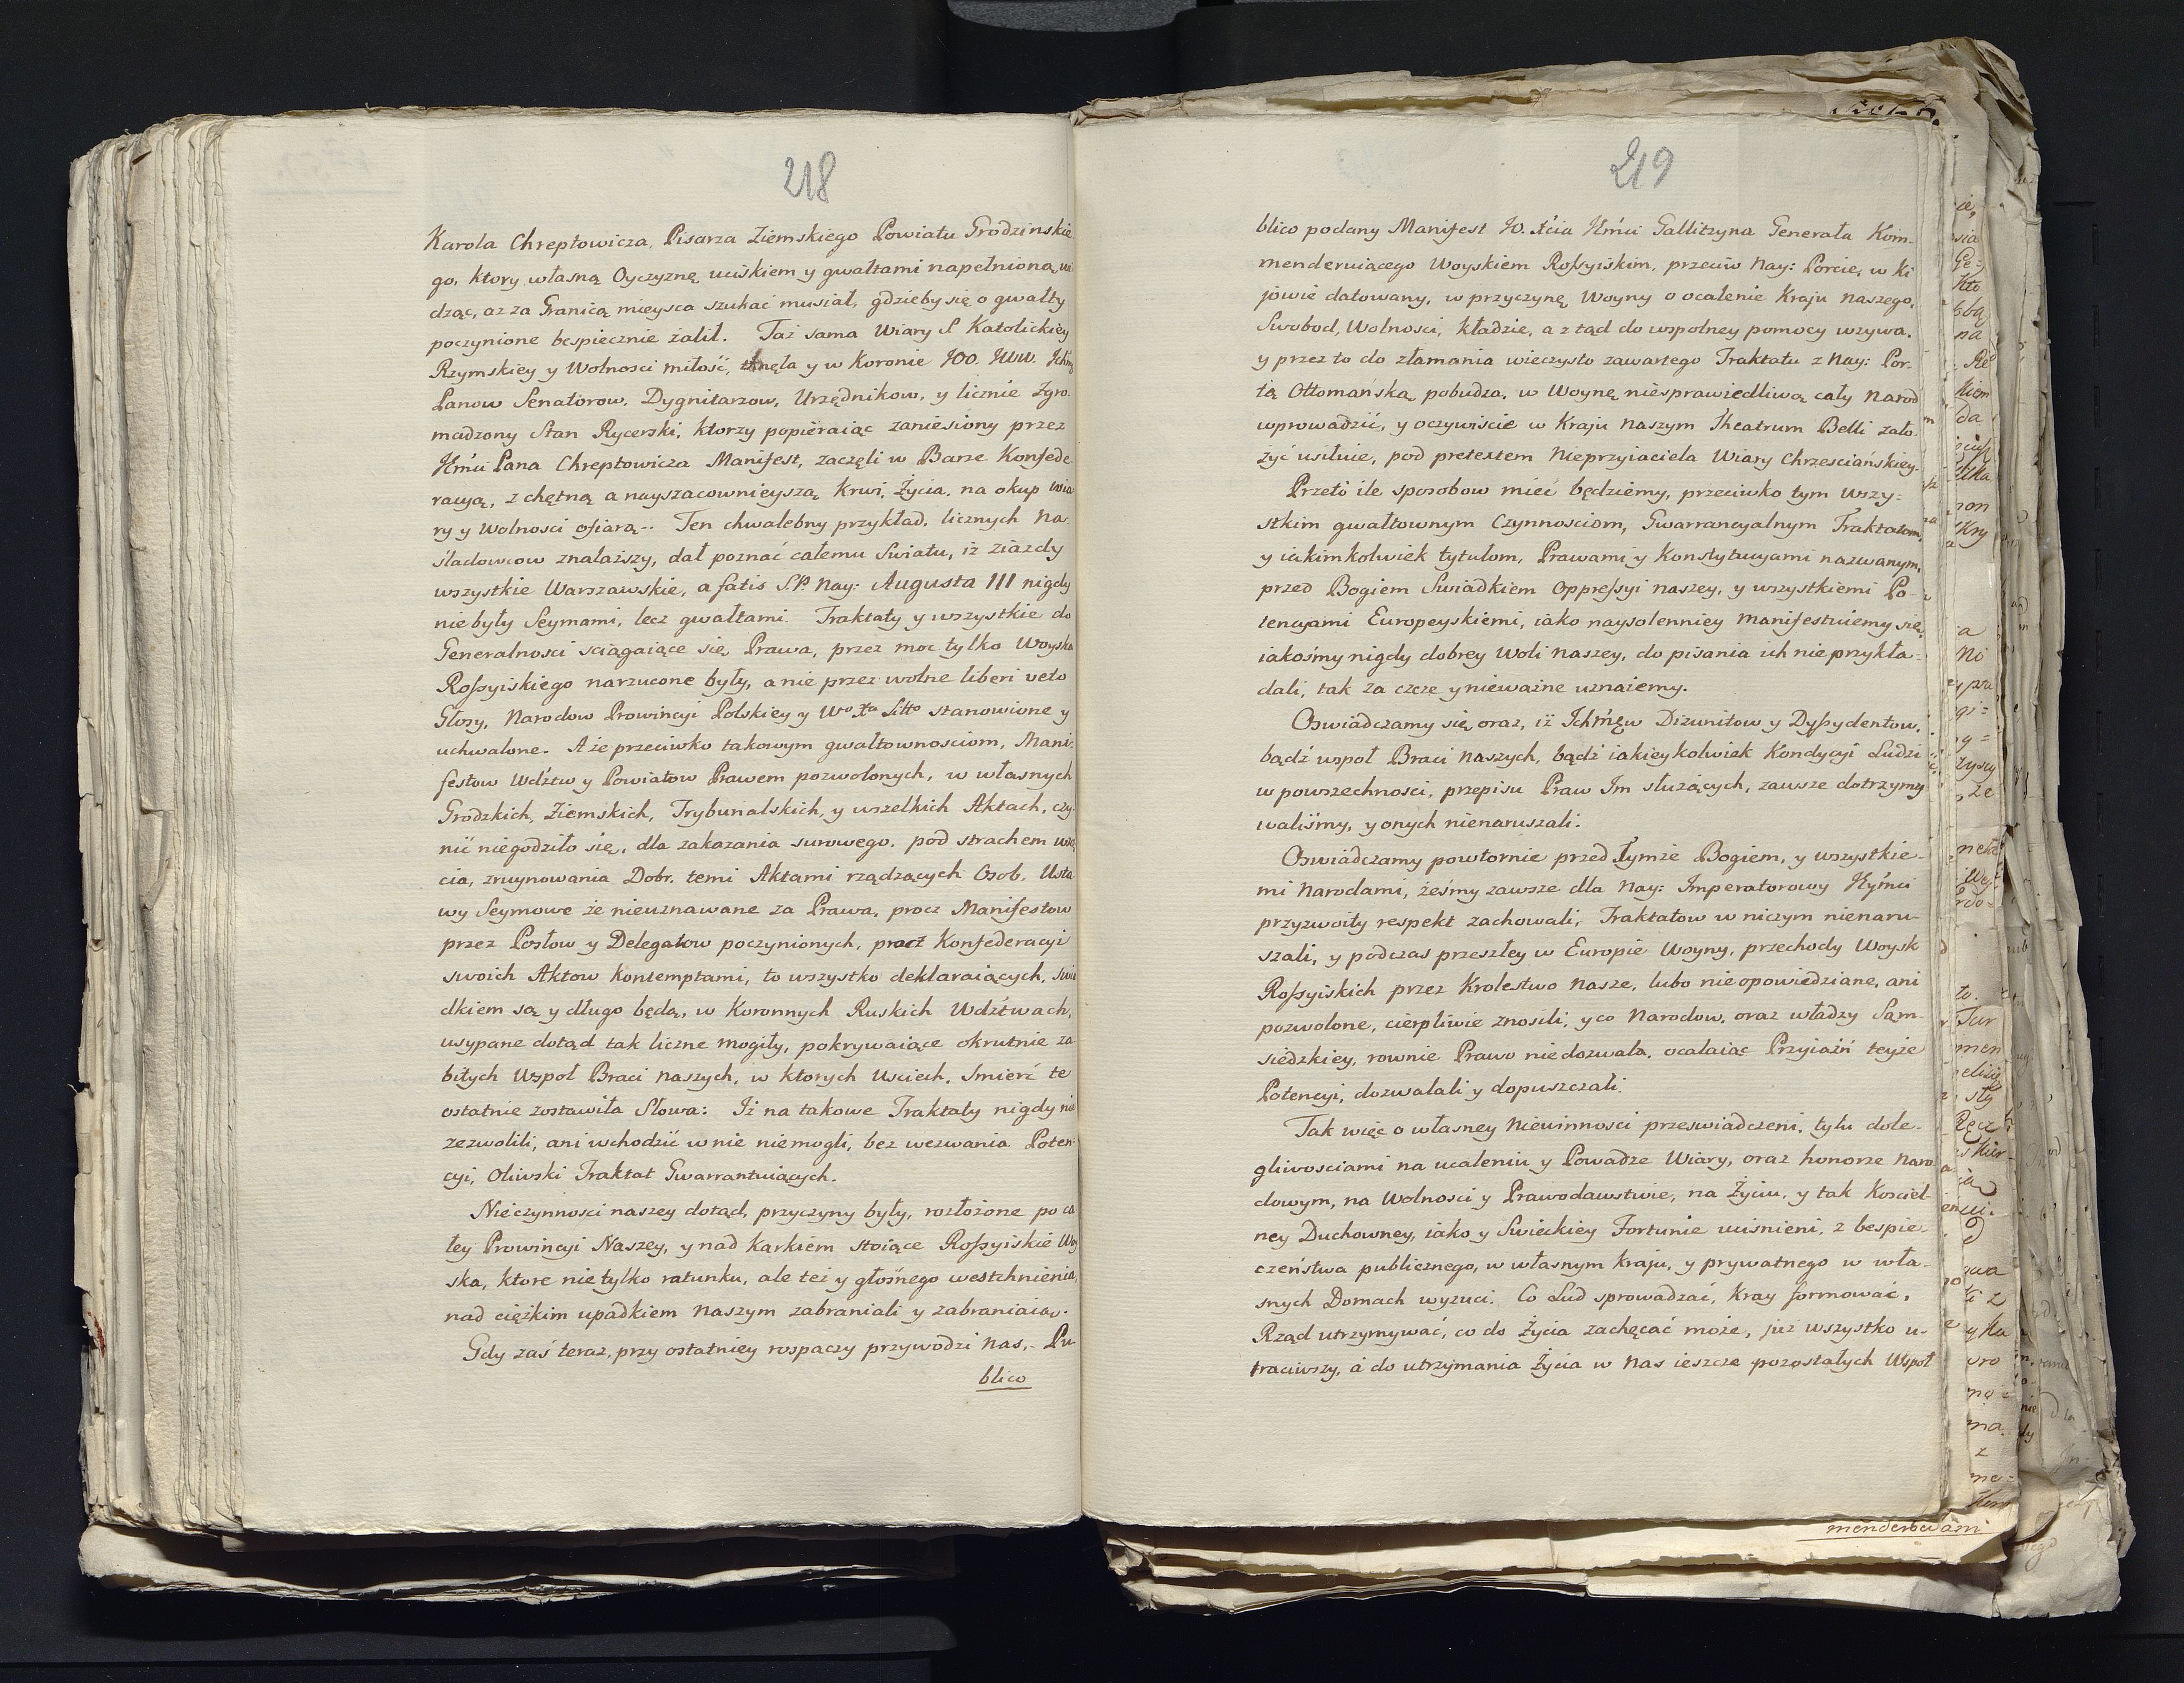 218
Karola Chreptowicza, Pisarza Ziemskiego Powiatu Grodzinskie
go, ktory własną Oyczyznę uciskiem y gwałtami napełnioną wi
dząc, az za Granicą mieysca szukać musiał, gdzieby się o gwałty
poczynione bespiecznie żalił. Taż sama Wiary S Katolickiey
Rzymskiey y Wolnosci miłość, tknęła y w Koronie JOO. JWW. Ichm
Panow Senatorow, Dygnitarzow, Urzędnikow, y licznie Zgro-
madzony Stan Rycerski, ktorzy popieraiąc zaniesiony przez
Jmci Pana Chreptowicza Manifest, zaczęli w Barze Konfede
racyą, z chętną a nayszacownieyszą Krwi, Życia, na okup Wia
ry y Wolnosci ofiarą.. Ten chwalebny przykład, licznych Na-
śladowcow znalaższy, dał poznać całemu Swiatu, iż ziazdy
wszystkie Warszawskie, a fatis S.P. Nay: Augusta III nigdy
nie były Seymami, lecz gwałtami. Traktaty y wszystkie do
Generalnosci sciągaiące się Prawa, przez moc tylko Woyska
Rossyiskiego narzucone były, a nie przez wolne liberi veto
Głosy, Narodow Prowincyi Polskiey y Wo Xa Litto stanowione y
uchwalone. A że przeciwko takowym gwałtownosciom, Mani-
festow Wdztw y Powiatow Prawem pozwolonych, w własnych
Grodzkich, Ziemskich, Trybunalskich, y wszelkich Aktach, czy-
nić niegodziło się, dla zakazania surowego, pod strachem wzię
cia, zruynowania Dobr, temi Aktami rządzących Osob, Usta
wy Seymowe że nieuznawane za Prawa, procz Manifestow
przez Posłow y Delegatow poczynionych, procz Konfederacyi
swoich Aktow kontemptami, to wszystko deklaraiących, swia
dkiem są y długo będą, w Koronnych Ruskich Wdztwach,
usypane dotąd tak liczne mogiły, pokrywaiące okrutnie za
bitych Wspoł Braci naszych, w ktorych Usciech, Smierć te
ostatnie zostawiła Słowa: Iż na takowe Traktaty nigdy nie
zezwolili, ani wchodzić w nie niemogli, bez wezwania Poten-
cyi, Oliwski Traktat Gwarrantuiących.
Nieczynnosci naszey dotąd, przyczyny były, rozłożone po ca
łey Prowincyi Naszey, y nad Karkiem stoiące Rossyiskie Woy
ska, ktore nie tylko ratunku, ale też y głośnego westchnienia,
nad cięzkim upadkiem naszym zabraniali y zabraniaią.
Gdy zaś teraz, przy ostatniey rospaczy przywodzi nas,. Pu-
blico
219
blico podany Manifest JO. Xcia Jmci Gallitzyna Generała Kom-
menderuiącego Woyskiem Rossyiskim, przeciw Nay: Porcie, w Ki
jowie datowany, w przyczynę Woyny o ocalenie Kraju naszego,
Swobod, Wolnosci, kładzie, a z tąd do wspolney pomocy wzywa,
y przez to do złamania wieczysto zawartego Traktatu z Nay: Por-
tą Ottomańską pobudza, w Woynę niesprawiedliwą cały Narod
wprowadzić, y oczywiscie w Kraju naszym Theatrum Belli zało-
żyć usiłuie, pod pretextem Nieprzyiaciela Wiary Chrzesciańskiey.
Przeto ile sposobow mieć będziemy, przeciwko tym wszy=
stkim gwałtownym Czynnosciom, Gwarrancyalnym Traktatom,
y iakimkolwiek tytułom, Prawami y Konstytucyami nazwanym,
przed Bogiem Swiadkiem Oppressyi naszey, y wszystkiemi Po-
tencyami Europeyskiemi, iako naysolenniey manifestuiemy się,
iakośmy nigdy dobrey Woli naszey, do pisania ich nie przykła=
dali, tak za czcze y nieważne uznaiemy.
Oswiadczamy się oraz, iż Ichmęw Dizunitow y Dyssydentow,
bądź wspoł Braci naszych, bądź iakieykolwiek Kondycyi Ludzi
w powszechnosci, przepisu Praw Im słuzących, zawsze dotrzymy
waliśmy, y onych nienaruszali.
Oswiadczamy powtornie przed tymże Bogiem, y wszystkie-
mi Narodami, żeśmy zawsze dla Nay: Imperatorowy Jeymci
przyzwoity respekt zachowali, Traktatow w niczym nienaru-
szali, y podczas przeszłey w Europie Woyny, przechody Woysk
Rossyiskich przez Krolestwo nasze, lubo nieopowiedziane, ani
pozwolone, cierpliwie znosili, y co Narodow, oraz władzy Sąm-
siedzkiey, rownie Prawo niedozwala, ocalaiąc Przyiaźń teyże
Potencyi, dozwalali y dopuszczali.
Tak więc o własney Niewinnosci przeswiadczeni, tylu dole-
gliwosciami na ucaleniu y Powadze Wiary, oraz honorze Naro
dowym, na Wolnosci y Prawodawstwie, na Życiu, y tak Kosciel-
ney Duchowney, iako y Swieckiey Fortunie ucisnieni, z bespie-
czeństwa publicznego, w własnym kraju, y prywatnego w wła-
snych Domach wyzuci. Co Lud sprowadzać, Kray formować,
Rząd utrzymywać, co do Życia zachęcać może, już wszystko u-
traciwszy, a do utrzymania Życia w nas ieszcze pozostałych Wspoł